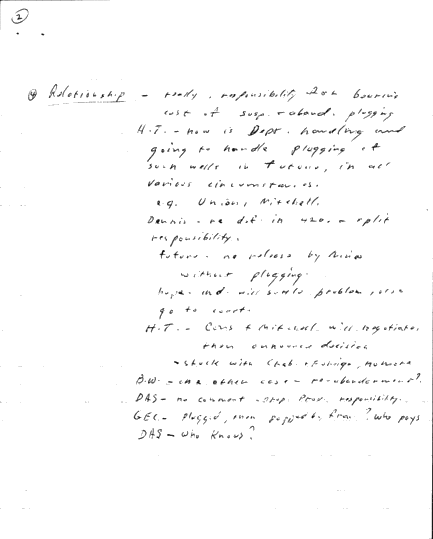 2
④ Relationship - really, responsibility for bearing
cost of susp. + aband. plugging
H.T. - how is Dept. handling and
going to handle plugging of
such wells in future, in all
various circumstances.
e.g. Union, Mitchell.
Dennis - no dif. in 420. - split
responsibility.
future - no release by
without plugging.
hope ind. will settle problem, or
go to court.
H.T. - Cons + Mitchell will negotiate,
then announce decision
- stuck with
B.W. - one other case - re-abandonment?
DAS - no comment - Prov. responsibility.
GEC - plugged, then from ? who pays
DAS - Who knows?